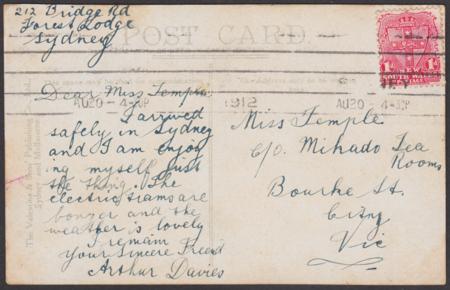 212 Bridge Rd
Forest Lodge
Sydney
POST CARD.
Dear Miss Temple
AU20-4-UP
1912
AU20-4-UP
I arrived
safely in Sydney
and I am enjoy
ing myself just
the thing. The
electric trams are
bonzer and the
weather is lovely
I remain
Your Sincere Friend
Arthur Davies
Miss Temple
C/o. Mikado Tea
Rooms
Bourke St.
City
Vic
SOUTH WALES